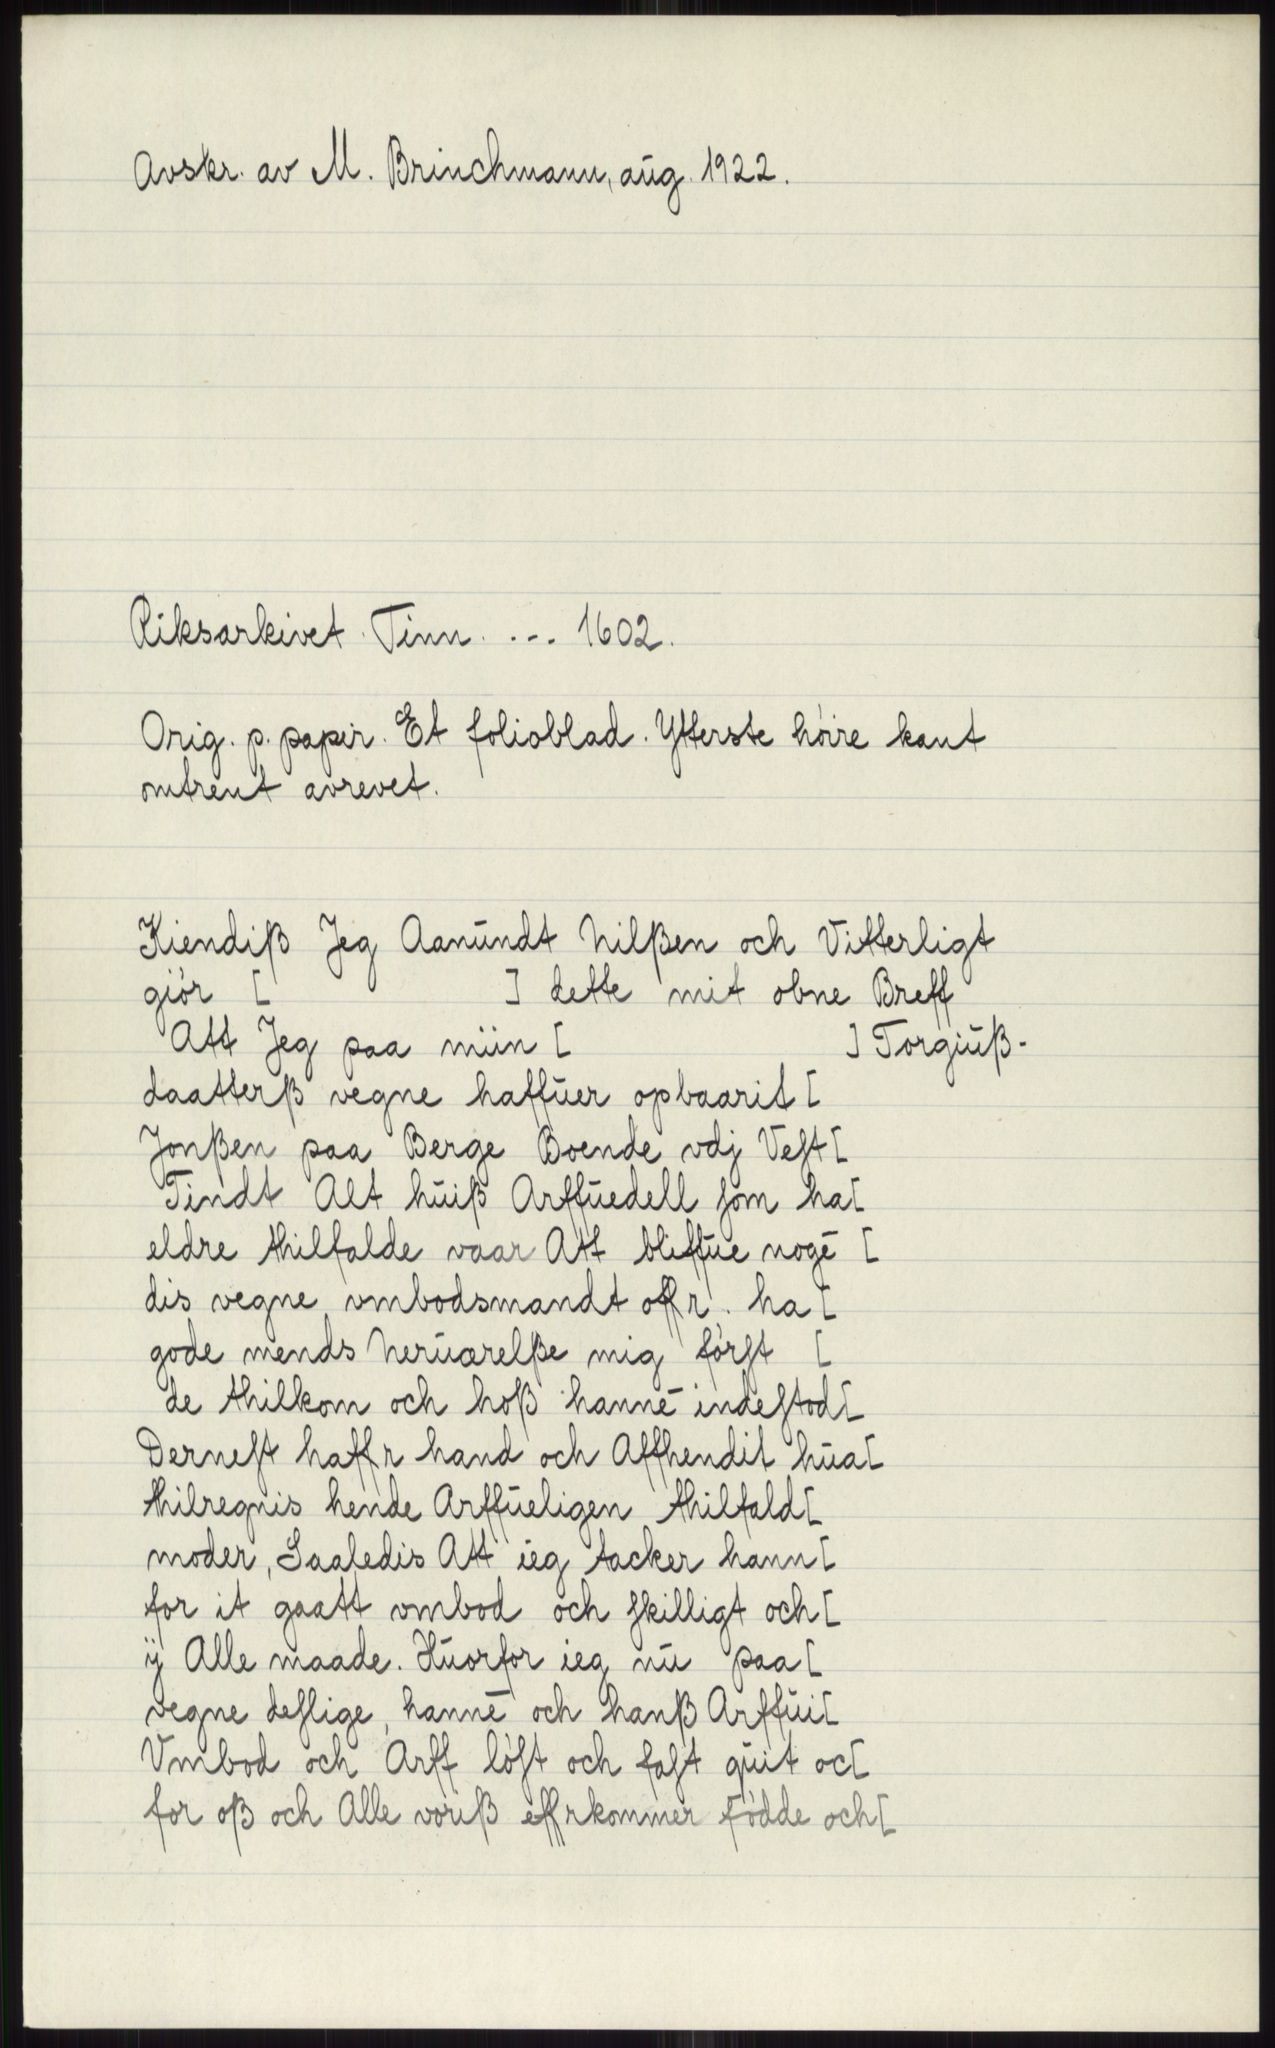 Avskr. av M. Brinchmann, aug. 1922.
Riksarkivet. Tinn. --- 1602.
Orig. p. papir. Et folioblad. Ytterste høire kant
omtrent avrevet.
Kiendiß Jeg Aanŭndt Nilßen och Vitterligt
giør [ ] dette mit obne Breff
Att Jeg paa miin [ ] Torgiŭß-
daatterß vegne haffŭer opbaarit [
Jonßen paa Berge Boende vdj Veſt [
Tindt Alt hŭiß Arffŭedell ſom ha [
eldre thilfalde vaar Att bliffŭe nogē [
dis vegne vmbodsmandt offr. ha [
gode mends Nerŭærelße mig førſt [
de thilkom och hoß hannē indeſtod [
Derneſt haffr hand och Affhendit hŭa [
thilregnis hende Arffŭeligen thilfald [
moder, Saaledis Att ieg tacker hann [
for it gaatt vmbod och ſkilligt och [
ÿ Alle maade. Hŭorfor ieg nŭ paa [
vegne deſlige, hannē och hanß Arffŭi [
Vmbod och Arff løſt och faſt qŭit oc [
for oß och Alle voriß effrkommer Fødde och [